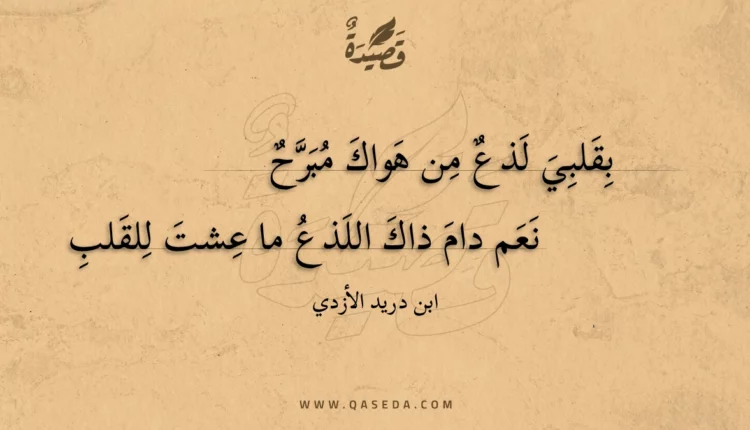 قَصِيدَةٌ
بِقَلبِيَ لَذعٌ مِن هَواكَ مُبَرَّحٌ
نَعَم دامَ ذاكَ اللَذعُ ما عِشتَ لِلقَلبِ
ابن دريد الأزدي
WWW.QASEDA.COM